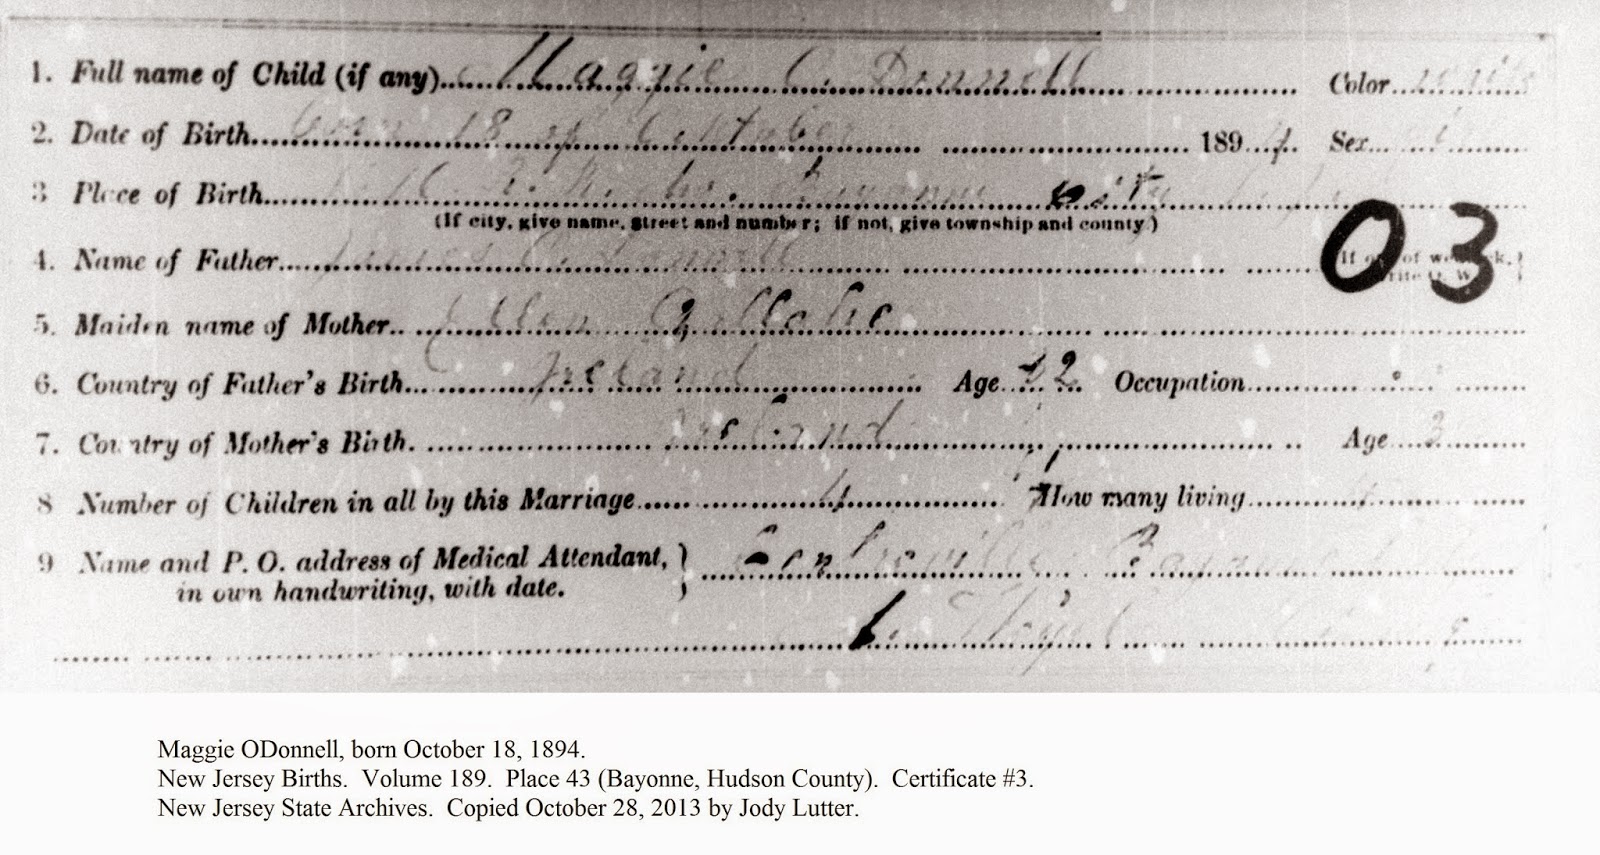 1. Full name of Child (if any) Maggie O. Donnell Color white
2. Date of Birth Born 18 of October 1894 Sex
3 Place of Birth Bayonne City
(If city, give name, street and number; if not, give township and county.)
4. Name of Father O. Donnell If out of wedlock, write O. W.
03
5. Maiden name of Mother Ellen
6. Country of Father's Birth Ireland Age Occupation
7. Country of Mother's Birth Ireland Age 3
8 Number of Children in all by this Marriage 4 How many living
9 Name and P. O. address of Medical Attendant, in own handwriting, with date. Centreville Bayonne
Maggie ODonnell, born October 18, 1894.
New Jersey Births. Volume 189. Place 43 (Bayonne, Hudson County). Certificate #3.
New Jersey State Archives. Copied October 28, 2013 by Jody Lutter.